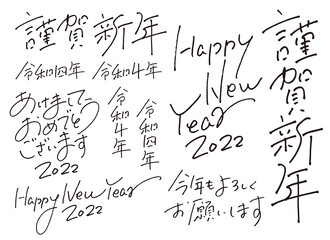 謹賀新年
令和四年 令和4年
あけまして
おめでとう
ございます
2022
令和4年
令和四年
Happy New Year
2022
Happy
New
Year
2022
今年もよろしく
お願いします
謹賀新年